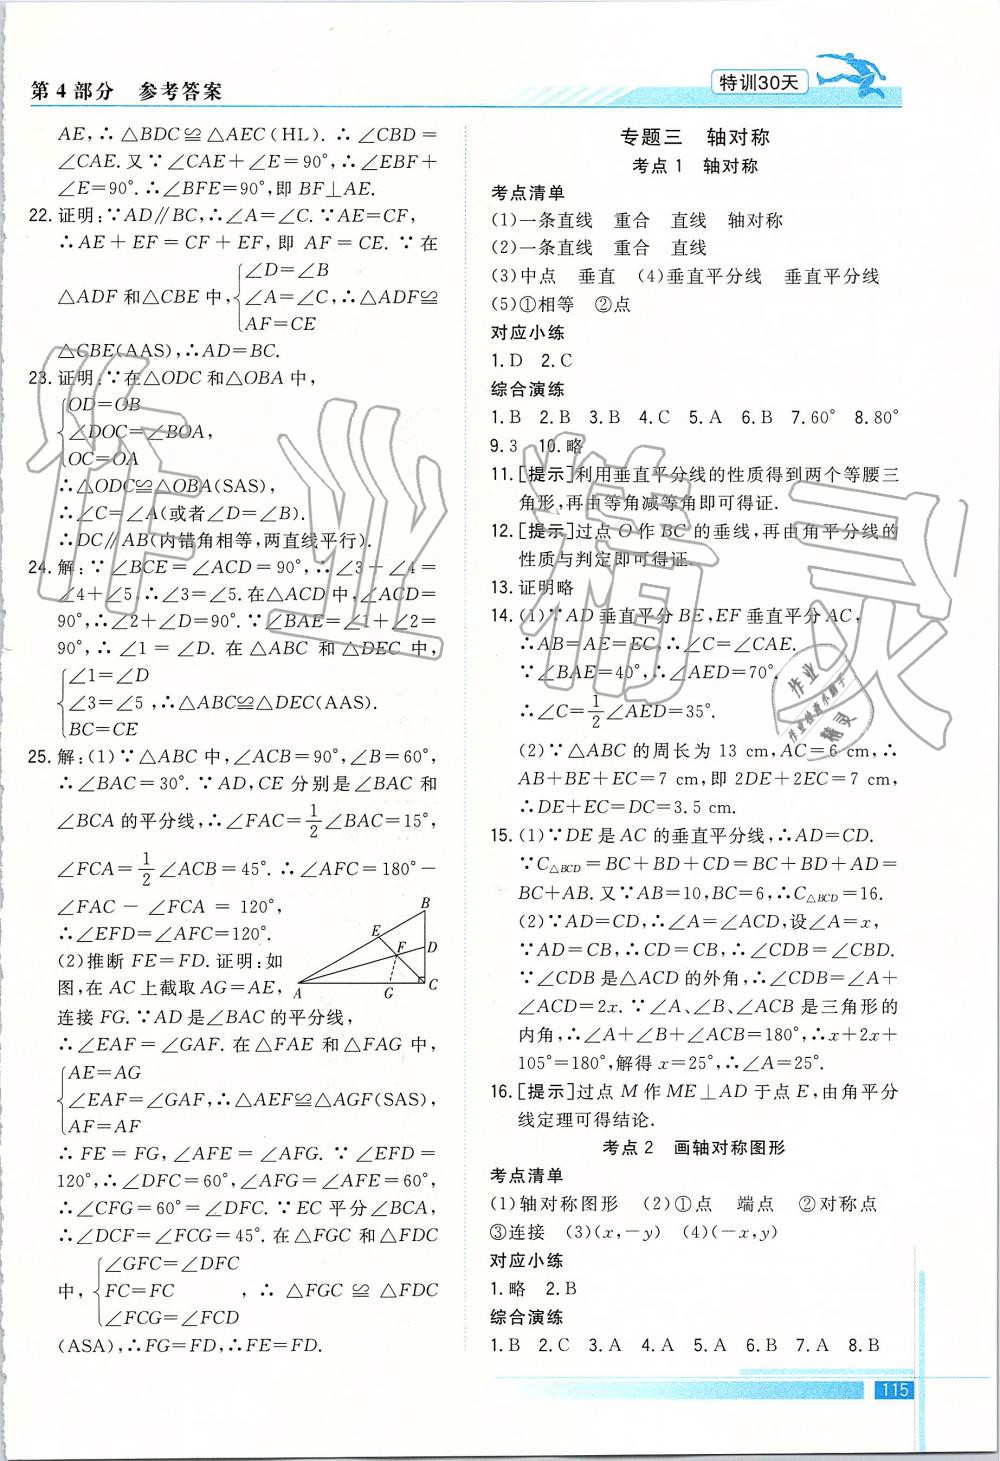 第4部分 参考答案
特训30天
AE,∴△BDC≌△AEC(HL).∴∠CBD=
∠CAE.又∵∠CAE+∠E=90°,∴∠EBF+
∠E=90°.∴∠BFE=90°,即BF⊥AE.
22.证明:∵AD∥BC,∴∠A=∠C.∵AE=CF,
∴AE+EF=CF+EF,即 AF=CE.∵在
△ADF和△CBE中,{∠D=∠B
∠A=∠C,∴△ADF≌
AF=CE
△CBE(AAS),∴AD=BC.
23.证明:∵在△ODC和△OBA中,
{OD=OB
∠DOC=∠BOA,
OC=OA
∴△ODC≌△OBA(SAS),
∴∠C=∠A(或者∠D=∠B).
∴DC∥AB(内错角相等,两直线平行).
24.解:∵∠BCE=∠ACD=90°,∴∠3+∠4=
∠4+∠5,∴∠3=∠5.在△ACD中,∠ACD=
90°,∴∠2+∠D=90°.∵∠BAE=∠1+∠2=
90°,∴∠1=∠D.在△ABC 和△DEC 中,
{∠1=∠D
∠3=∠5,∴△ABC≌△DEC(AAS).
BC=CE
25.解:(1)∵△ABC中,∠ACB=90°,∠B=60°,
∴∠BAC=30°.∵AD,CE分别是∠BAC 和
∠BCA的平分线,∴∠FAC=1/2∠BAC=15°,
∠FCA=1/2∠ACB=45°.∴∠AFC=180°-
∠FAC-∠FCA=120°,
∴∠EFD=∠AFC=120°.
(2)推断FE=FD.证明:如
图,在AC上截取AG=AE,
B
E
F
D
A
G
C
连接FG.∵AD是∠BAC的平分线,
∴∠EAF=∠GAF.在△FAE和△FAG中,
{AE=AG
∠EAF=∠GAF,∴△AEF≌△AGF(SAS),
AF=AF
∴FE=FG,∠AFE=∠AFG.∵∠EFD=
120°,∴∠DFC=60°,∠AFG=∠AFE=60°,
∴∠CFG=60°=∠DFC.∵EC平分∠BCA,
∴∠DCF=∠FCG=45°.在△FGC和△FDC
中,{∠GFC=∠DFC
FC=FC ,∴△FGC≌△FDC
∠FCG=∠FCD
(ASA),∴FG=FD,∴FE=FD.
专题三 轴对称
考点1 轴对称
考点清单
(1)一条直线 重合 直线 轴对称
(2)一条直线 重合 直线
(3)中点 垂直 (4)垂直平分线 垂直平分线
(5)①相等 ②点
对应小练
1.D 2.C
综合演练
1.B 2.B 3.B 4.C 5.A 6.B 7.60° 8.80°
9.3 10.略
11.[提示]利用垂直平分线的性质得到两个等腰三
角形,再由等角减等角即可得证.
12.[提示]过点O作BC的垂线,再由角平分线的
性质与判定即可得证.
13.证明略
14.(1)∵AD垂直平分BE,EF垂直平分AC,
∴AB=AE=EC,∴∠C=∠CAE.
∵∠BAE=40°,∴∠AED=70°.
∴∠C=1/2∠AED=35°.
(2)∵△ABC的周长为13 cm,AC=6 cm,∴
AB+BE+EC=7 cm,即2DE+2EC=7 cm,
∴DE+EC=DC=3.5 cm.
15.(1)∵DE是AC的垂直平分线,∴AD=CD.
∵C△BCD=BC+BD+CD=BC+BD+AD=
BC+AB.又∵AB=10,BC=6,∴C△BCD=16.
(2)∵AD=CD,∴∠A=∠ACD,设∠A=x,
∵AD=CB,∴CD=CB,∴∠CDB=∠CBD.
∵∠CDB是△ACD的外角,∴∠CDB=∠A+
∠ACD=2x.∵∠A、∠B、∠ACB是三角形的
内角,∴∠A+∠B+∠ACB=180°,∴x+2x+
105°=180°,解得x=25°,∴∠A=25°.
16.[提示]过点M作ME⊥AD于点E,由角平分
线定理可得结论.
考点2 画轴对称图形
考点清单
(1)轴对称图形 (2)①点 端点 ②对称点
③连接 (3)(x,-y) (4)(-x,y)
对应小练
1.略 2.B
综合演练
1.B 2.C 3.A 4.A 5.A 6.B 7.A 8.B
115
作业精灵
作业
精灵